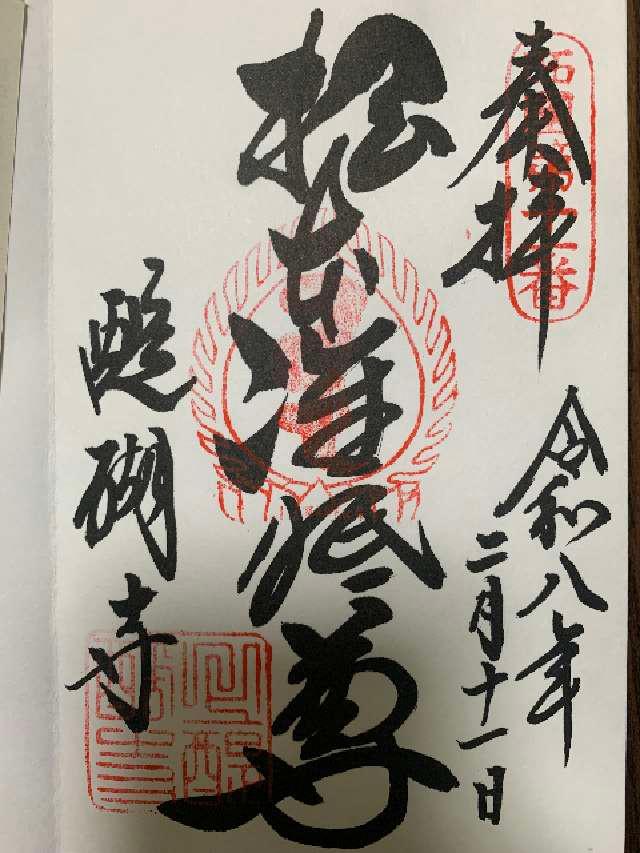 西国第十一番
奉拝
令和八年
二月十一日
根本准胝尊
醍醐寺